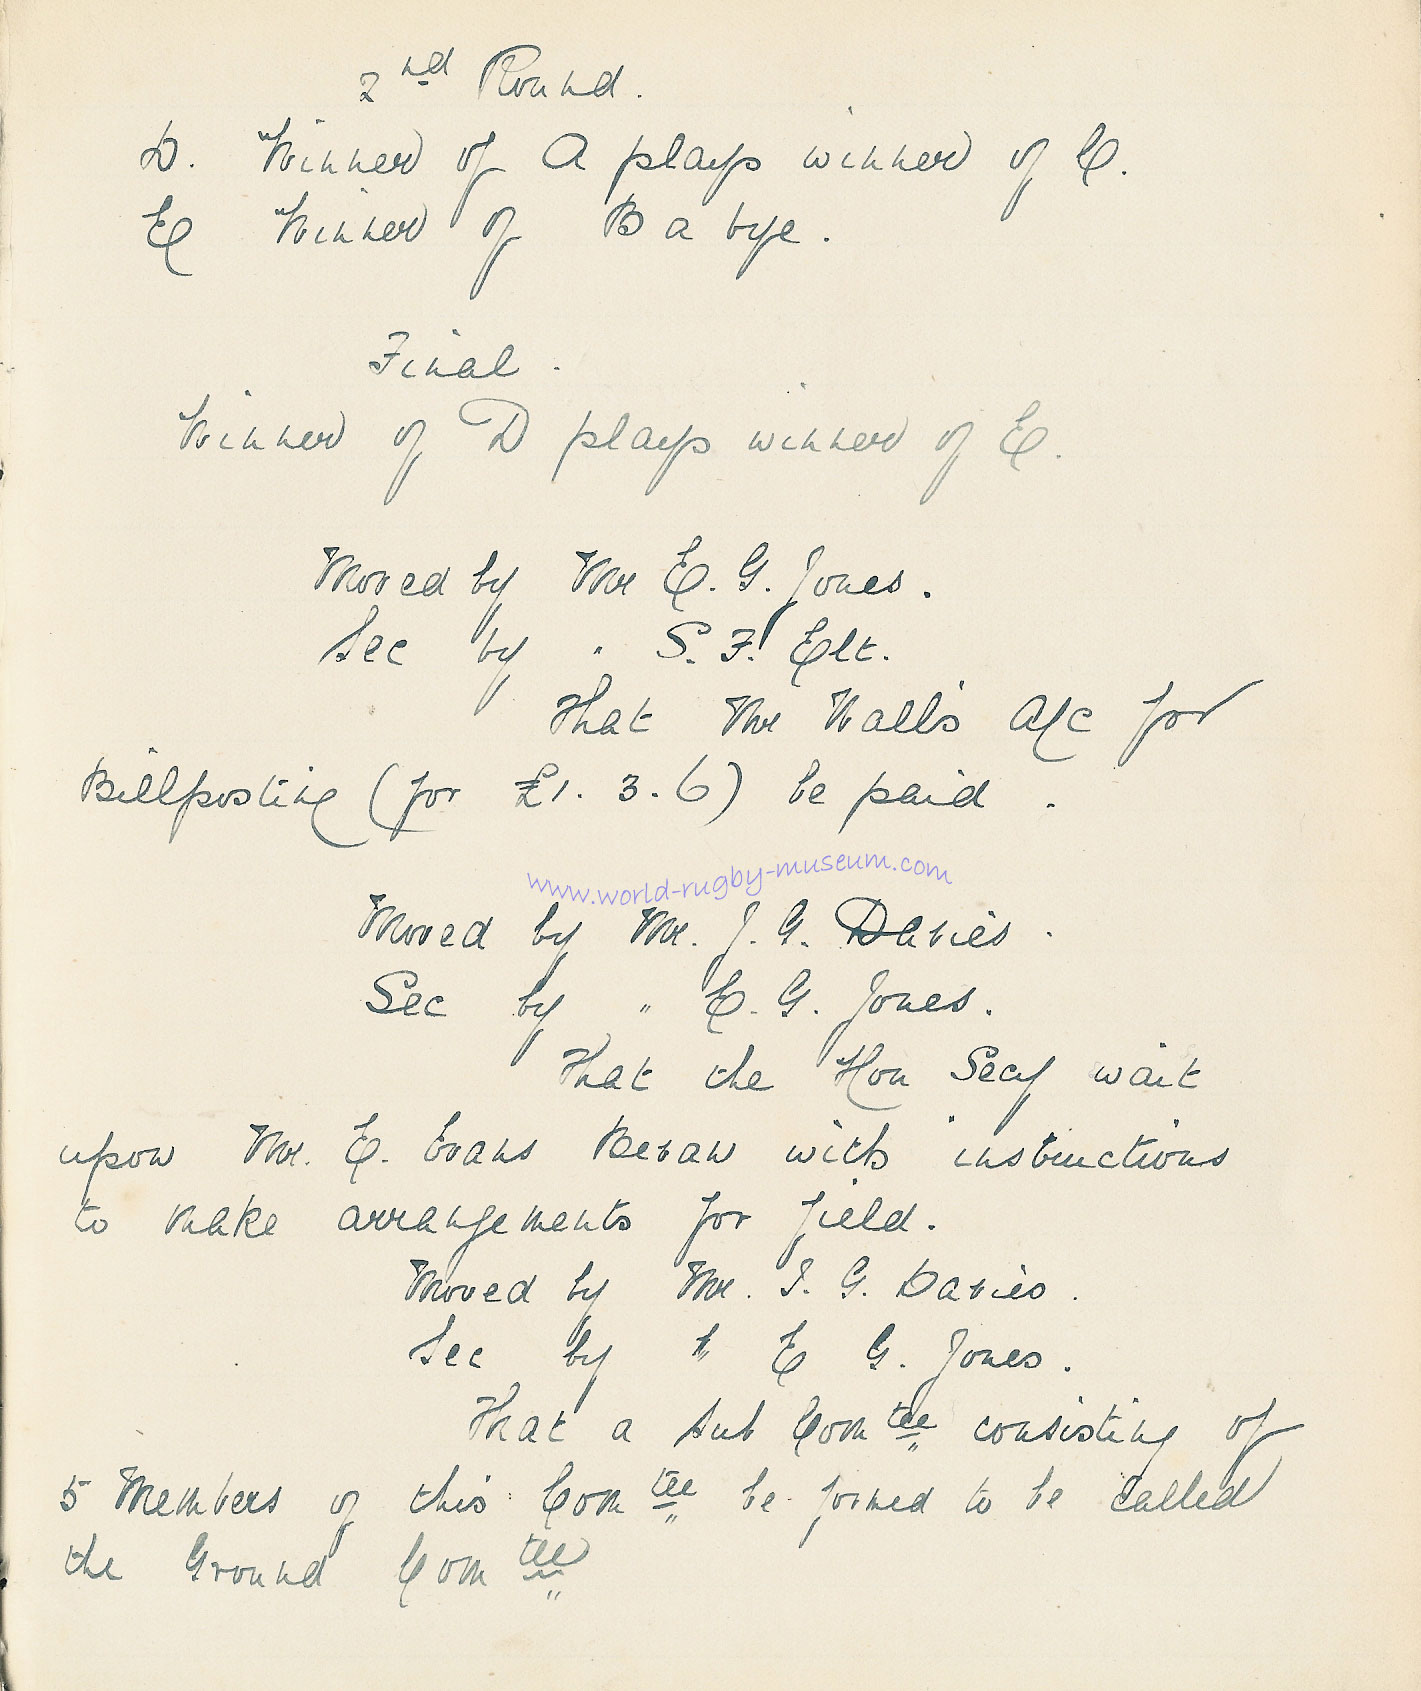 2nd Round.
D. Winner of A plays winner of C.
E Winner of B a bye.
Final.
Winner of D plays winner of E.
Moved by Mr E. G. Jones.
Sec by " S. F. Elt.
That Mr Wall's A/c for
Billposting (for £1. 3. 6) be paid.
www.world-rugby-museum.com
Moved by Mr. J. G. Davies.
Sec by " E. G. Jones.
That the Hon Secy wait
upon Mr. E. Evans Bevan with instructions
to make arrangements for field.
Moved by Mr. J. G. Davies.
Sec by " E G. Jones.
That a sub Comtee consisting of
5 Members of this Comtee be formed to be called
the Ground Comtee